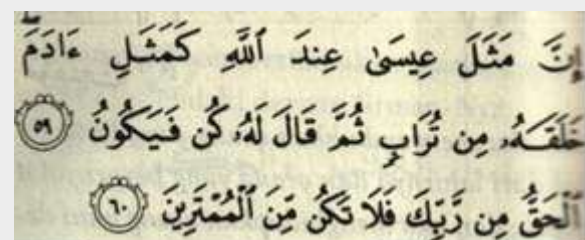 إِنَّ مَثَلَ عِيسَىٰ عِندَ ٱللَّهِ كَمَثَلِ ءَادَمَ
خَلَقَهُۥ مِن تُرَابٍ ثُمَّ قَالَ لَهُۥ كُن فَيَكُونُ ٥٩
ٱلْحَقُّ مِن رَّبِّكَ فَلَا تَكُن مِّنَ ٱلْمُمْتَرِينَ ٦٠